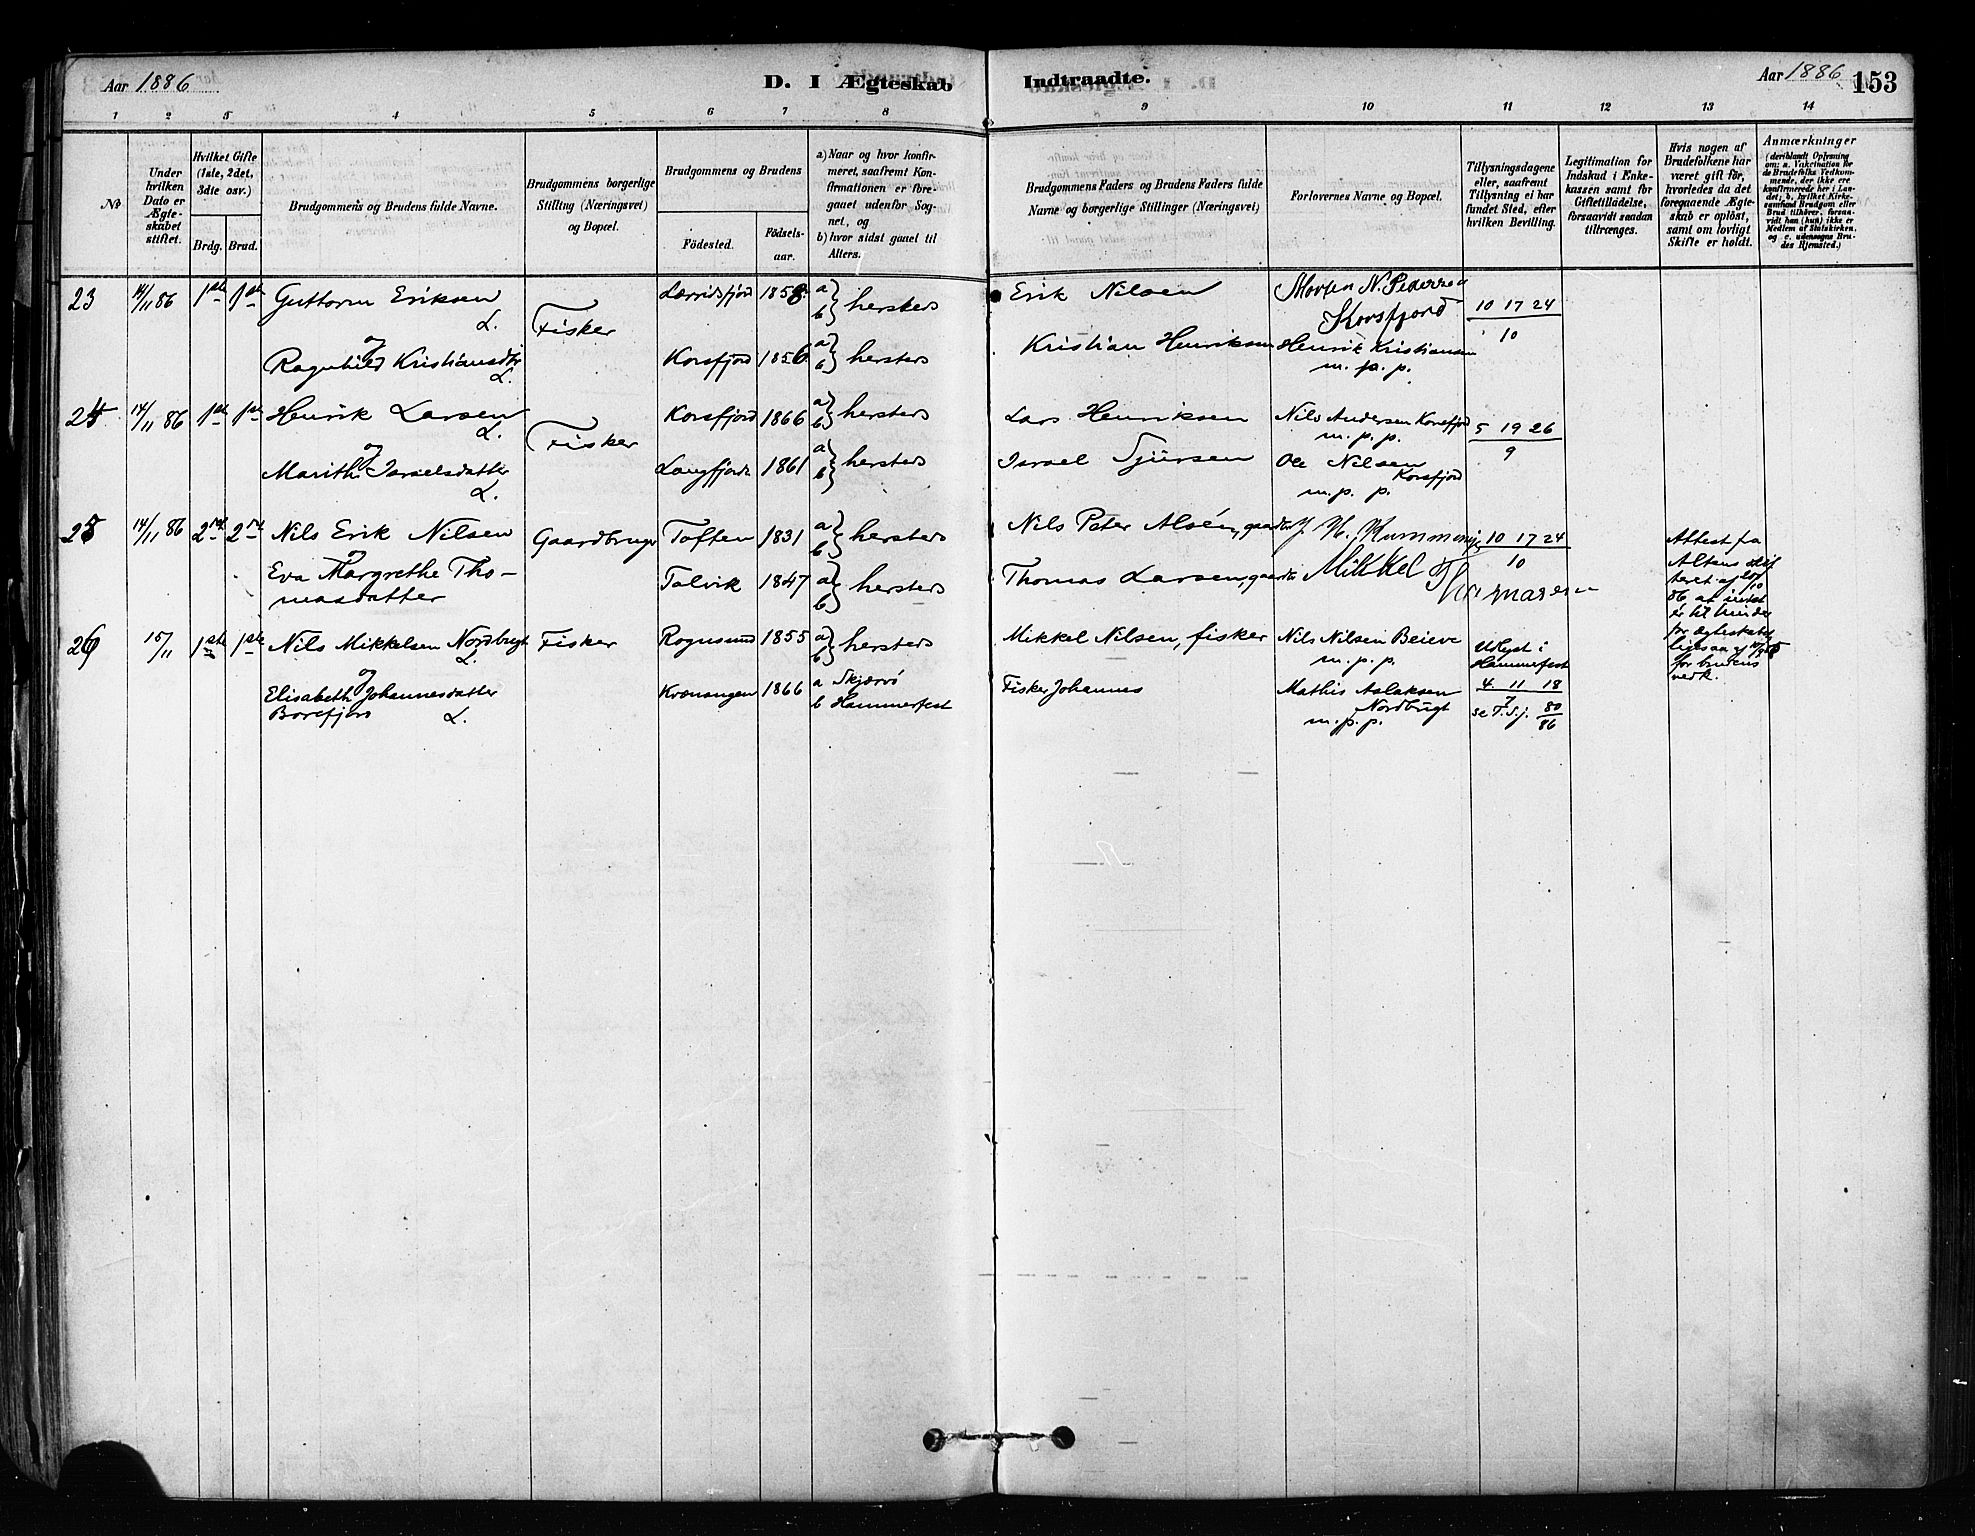 Aar 1886
D. I Ægteskab
Indtraadte.
Aar 1886 153
1 2 3 4 5 6 7 8 9 10 11 12 13 14
No
Under hvilken Dato er Ægteskabet stiftet.
Hvilket Gifte (1ste, 2det, 3die osv.)
Brdg. Brud.
Brudgommens og Brudens fulde Navne.
Brudgommens borgerlige Stilling (Næringsvei) og Bopæl.
Brudgommens og Brudens
Fødested.
Fødselsaar.
a) Naar og hvor konfirmeret, saafremt Konfirmationen er foregaaet udenfor Sognet, og
b) hvor sidst gaaet til Alters.
Brudgommens Faders og Brudens Faders fulde Navne og borgerlige Stillinger (Næringsvei)
Forlovernes Navne og Bopæl.
Tillysningsdagene eller, saafremt Tillysning ei har fundet Sted, efter hvilken Bevilling.
Legitimation for Indskud i Enkekassen samt for Giftetilladelse, forsaavidt saadan tiltrænges.
Hvis nogen af Brudefolkene har været gift før, hvorledes da det foregaaende Ægteskab er opløst, samt om lovligt Skifte er holdt.
Anmærkninger
(deriblandt Oplysning om: a. Vakcination for de Brudefolks Vedkommende, der ikke ere konfirmerede her i Landet; b. hvilket Kirkesamfund Brudgom eller Brud tilhører, forsaavidt han (hun) ikke er Medlem af Statskirken, og c. udensogns Brudes Hjemsted.)
23 14/11 86 1ste 1ste Guttorm Eriksen L. Fisker 1858 a b } hersteds Erik Nilsen Morten N. Pedersen Korsfjord 10 17 24 / 10
og Ragnhild Kristiansdtr L. Korsfjord 1856 a b } hersteds Kristian Henriksen Henrik Kristiansen m. p. p.
24 14/11 86 1ste 1ste Henrik Larsen L. Fisker Korsfjord 1866 a b } hersteds Lars Henriksen Nils Andersen Korsfjord m. p. p. 5 19 26 / 9
og Marith Israelsdatter L. Langfjord 1861 a b } hersteds Israel Sjursen Ole Nilsen Korsfjord m. p. p.
25 14/11 86 2det 2det Nils Erik Nilsen Gaardbruger Toften 1831 a b } hersteds Nils Peter Alsén, gaardbr 10 17 24 / 10
og Eva Margrethe Tho-
masdatter Talvik 1847 a b } hersteds Thomas Larsen, gaardbr Mikkel Thomasen
Attest fra
Altens
26 15/11 1ste 1ste Nils Mikkelsen Nordbugt L. Fisker Rognsund 1855 a b } hersteds Mikkel Nilsen, fisker Nils Nilsen Beieve m. p. p. Utlyst i
Hammerfest
4. 11 18 / 7
se T.S.j. 80/86
og Elisabeth Johannesdatter
L. Kvænangen 1866 a Skjærvö
b Hammerfest Fisker Johannes Mathis Aslaksen
Nordbugt
m. p. p.
er til hinder
for ægteskabet
for brudens
vedk.